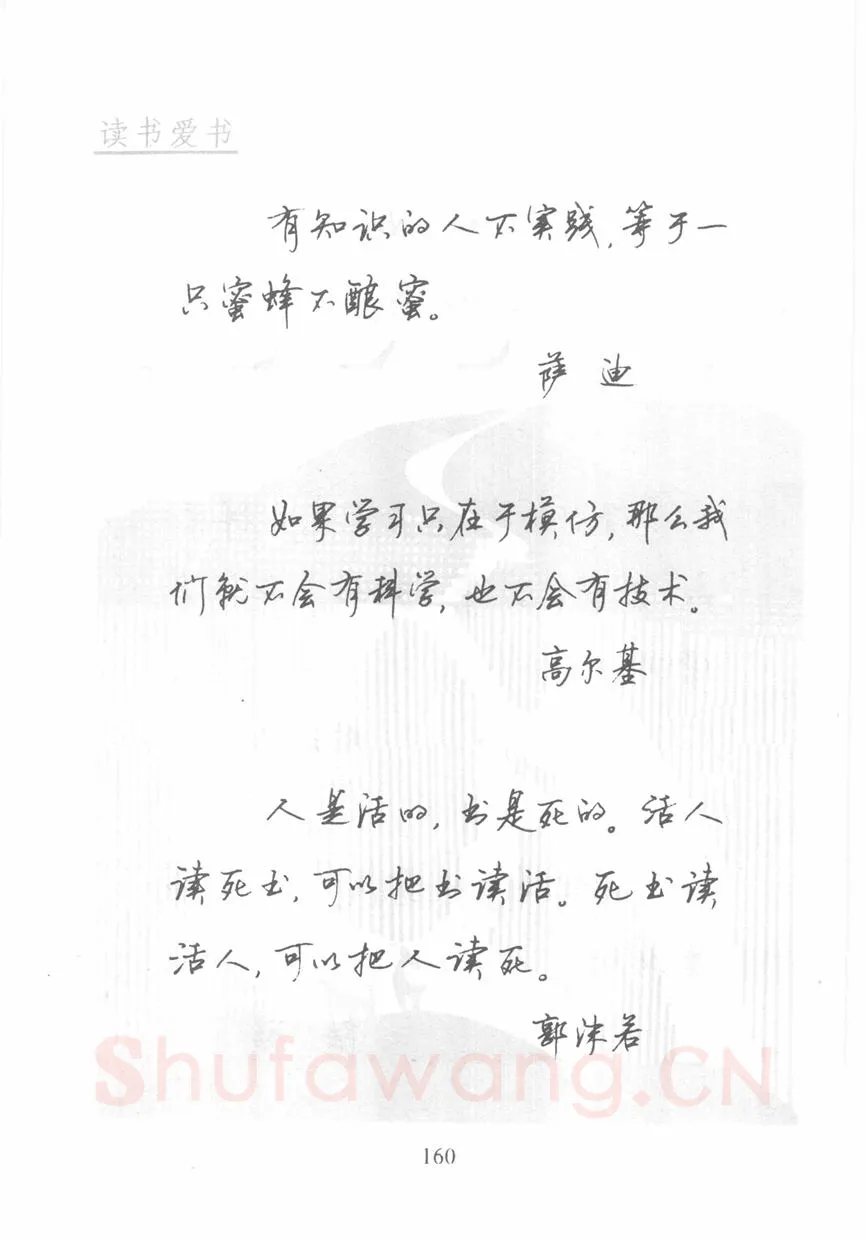 读书爱书
有知识的人不实践,等于一
只蜜蜂不酿蜜。
萨迪
如果学习只在于模仿,那么我
们就不会有科学,也不会有技术。
高尔基
人是活的,书是死的。活人
读死书,可以把书读活。死书读
活人,可以把人读死。
郭沫若
Shufawang.CN
160